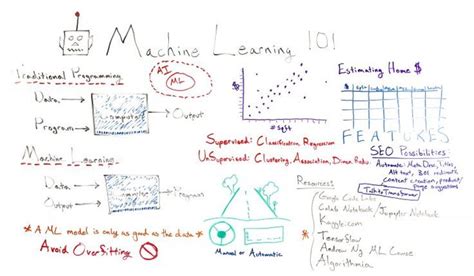 Machine Learning 101
Traditional Programming
Data
Program
Computer
Output
AI
ML
$
# Sqft
Estimating Home $
FEATURES
Machine Learning
Data
Output
Computer
Program
Supervised: Classification, Regression
UnSupervised: Clustering, Association, Dimen. Reduc.
SEO Possibilities:
Automate: Meta Desc, Titles,
Alt text, 301 redirects,
Content creation, product/
page suggestions
TalktoTransformer
* A ML model is only as good as the data *
Avoid Overfitting
Manual or Automatic
Resources:
Google Code Labs
Colab Notebook/Jupyter Notebook
Kaggle.com
Tensorflow
Andrew Ng ML Course
Algorithmia